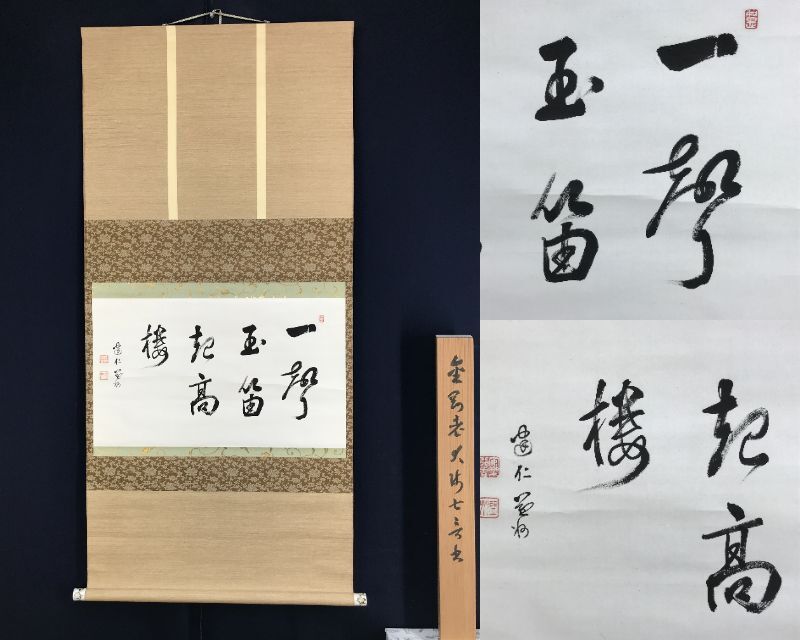 一聲
玉笛
起高
樓
建仁 益州
金剛老大師七言書
一聲
玉笛
起高
樓
建仁 益州